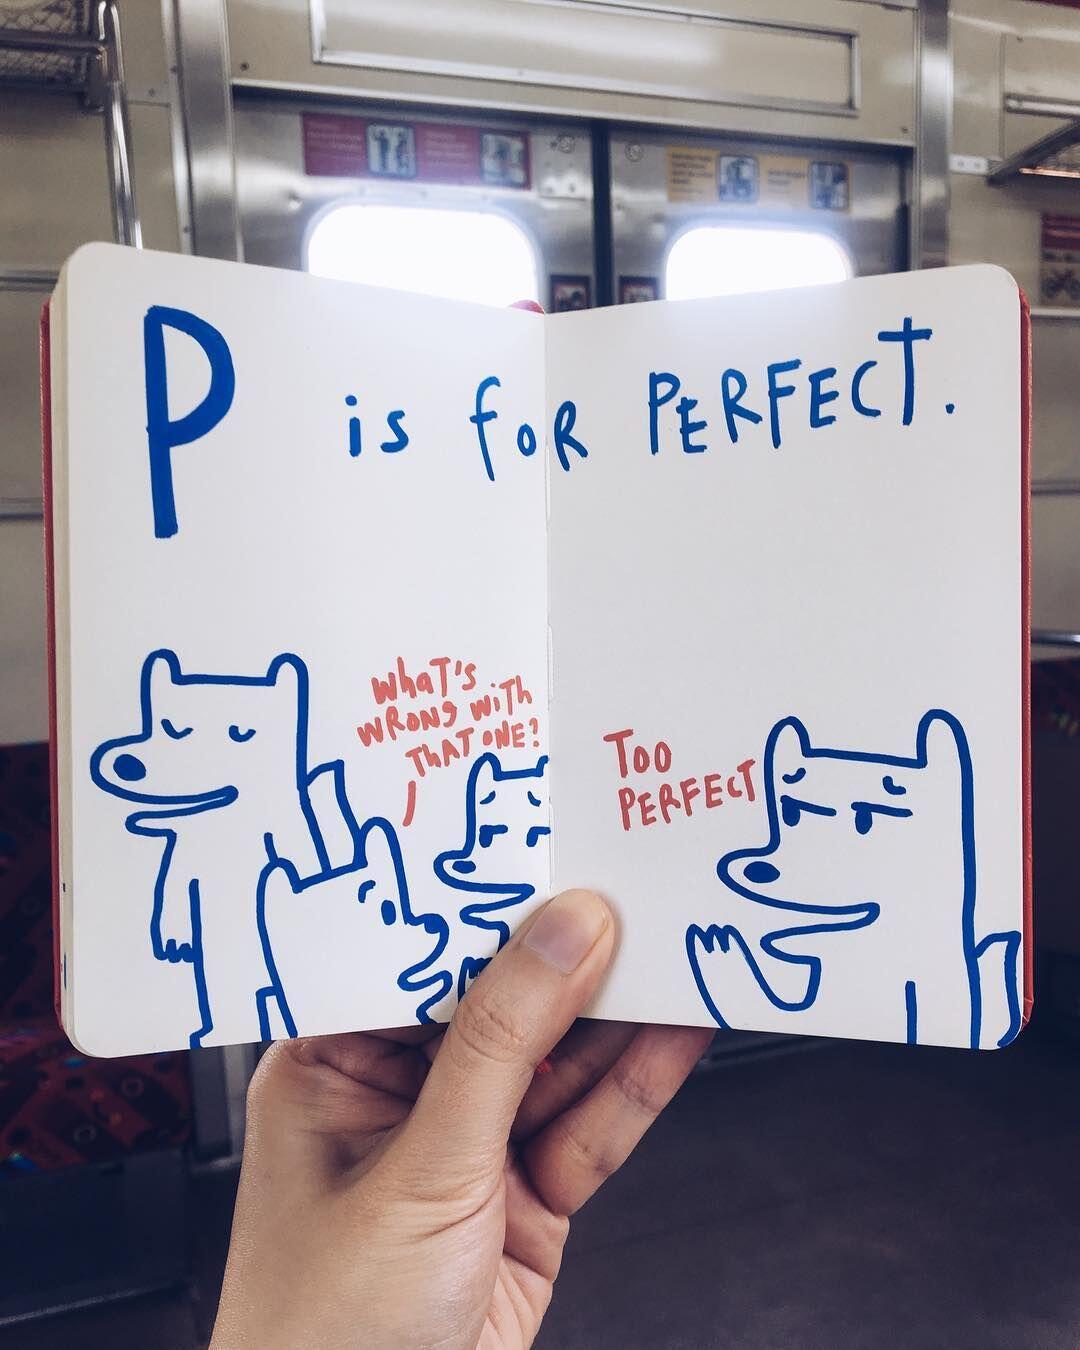 P is foR PERFECT.
whaT's
WRONg WiTh
ThAT ONE?
Too
PERFECT